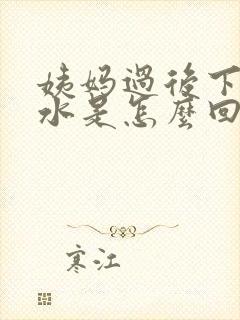 姨妈過後下
水是怎麼回
寒江